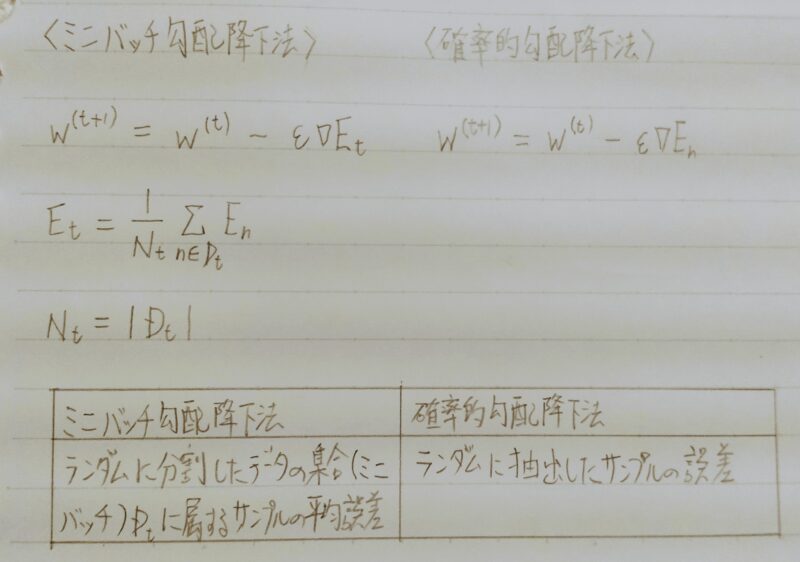 〈ミニバッチ勾配降下法〉 〈確率的勾配降下法〉
w^(t+1) = w^(t) - ε∇E_t w^(t+1) = w^(t) - ε∇E_n
E_t = 1/N_t Σ_{n∈D_t} E_n
N_t = |D_t|
ミニバッチ勾配降下法 確率的勾配降下法
ランダムに分割したデータの集合(ミニ ランダムに抽出したサンプルの誤差
バッチ)D_tに属するサンプルの平均誤差